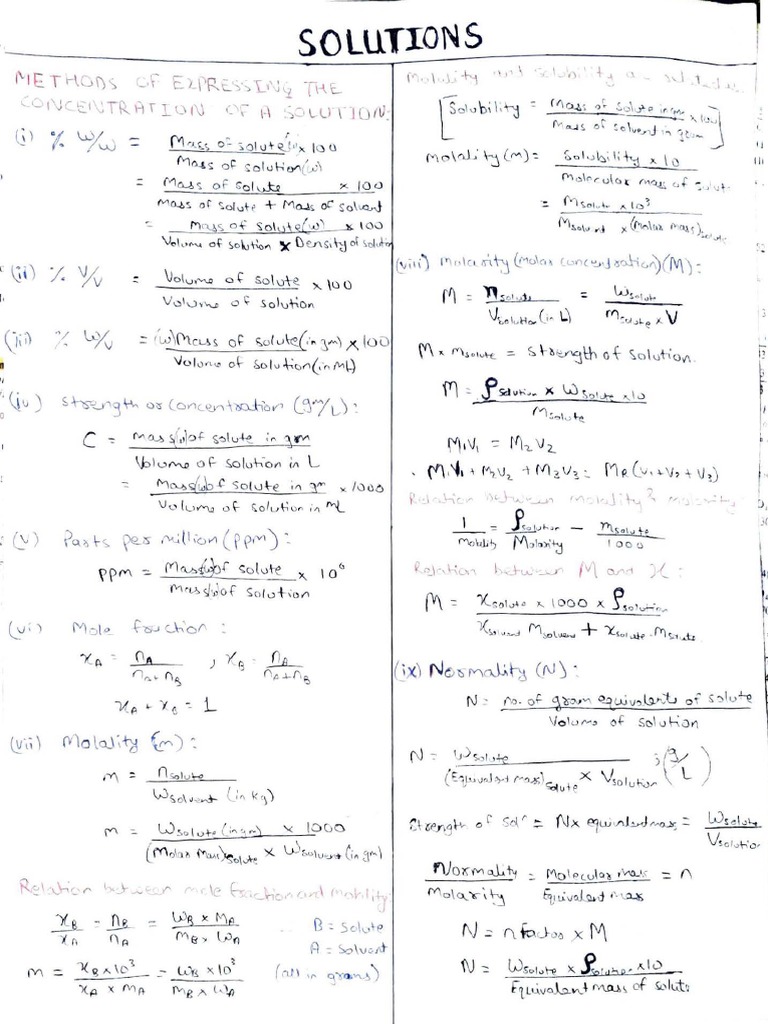 SOLUTIONS
METHODS OF EXPRESSING THE
CONCENTRATION OF A SOLUTION:
(i) % w/w = Mass of solute × 100 / Mass of solution(w)
= Mass of solute × 100 / Mass of solute + Mass of solvent
= Mass of solute(w) × 100 / Volume of solution × Density of solution
(ii) % V/V = Volume of solute × 100 / Volume of solution
(iii) % w/v = (w)Mass of solute(in gm) × 100 / Volume of solution(in mL)
(iv) Strength or concentration (gm/L):
C = mass(w)of solute in gm / Volume of solution in L
= Mass(w)of solute in gm × 1000 / Volume of solution in mL
(v) Parts per million (ppm):
ppm = Mass(w)of solute × 10⁶ / Mass(w)of solution
(vi) Mole fraction:
xA = nA / nA+nB , xB = nA / nA+nB
xA + xB = 1
(vii) Molality (m):
m = nsolute / Wsolvent (in kg)
m = Wsolute (in gm) × 1000 / (Molar Mass)solute × Wsolvent (in gm)
Relation between mole fraction and molality:
xB / xA = nB / nA = wB × mA / mB × wA
B = Solute
A = Solvent
m = xB × 10³ / xA × mA = wB × 10³ / mB × wA (all in grams)
Molality and solubility
[Solubility = Mass of solute in gm × 100 / Mass of solvent in gram]
molality (m) = Solubility × 10 / Molecular mass of solute
= Msolute × 10³ / Msolvent × (Molar mass)solute
(viii) Molarity (molar concentration) (M):
M = nsolute / Vsolution (in L) = Wsolute / Msolute × V
M × msolute = Strength of solution.
M = ρsolution × Wsolute × 10 / Msolute
M₁V₁ = M₂V₂
M₁V₁ + M₂V₂ + M₃V₃ = MR (V₁ + V₂ + V₃)
Relation between molality & molarity:
1 / molality = ρsolution / Molarity − msolute / 1000
Relation between M and x:
M = xsolute × 1000 × ρsolution / xsolvent Msolvent + xsolute . Msolute
(ix) Normality (N):
N = no. of gram equivalents of solute / Volume of solution
N = Wsolute / (Equivalent mass)solute × Vsolution ; (g/L)
Strength of solⁿ = N × equivalent mass = Wsolute / Vsolution
Normality / Molarity = Molecular mass / Equivalent mass = n
N = n factor × M
N = Wsolute × ρsolution × 10 / Equivalent mass of solute